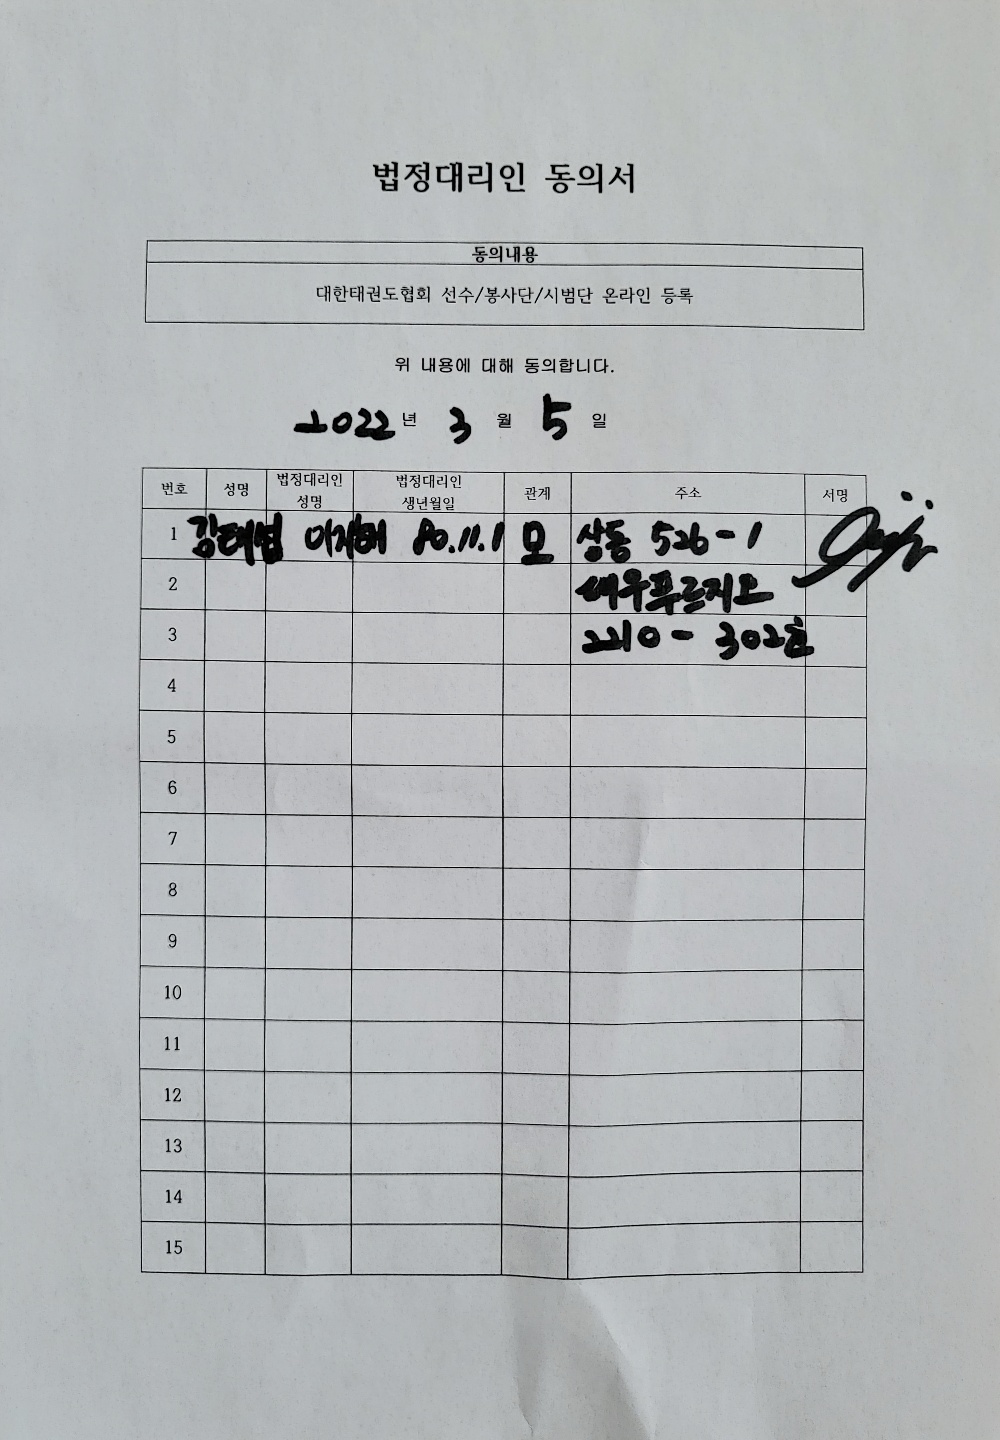 법정대리인 동의서
동의내용
대한태권도협회 선수/봉사단/시범단 온라인 등록
위 내용에 대해 동의합니다.
2022년 3월 5일
번호 성명 법정대리인 성명 법정대리인 생년월일 관계 주소 서명
1 강태범 이지혜 80.11.1 모 상동 526-1
2 대우푸르지오
3 2210-302호
4
5
6
7
8
9
10
11
12
13
14
15